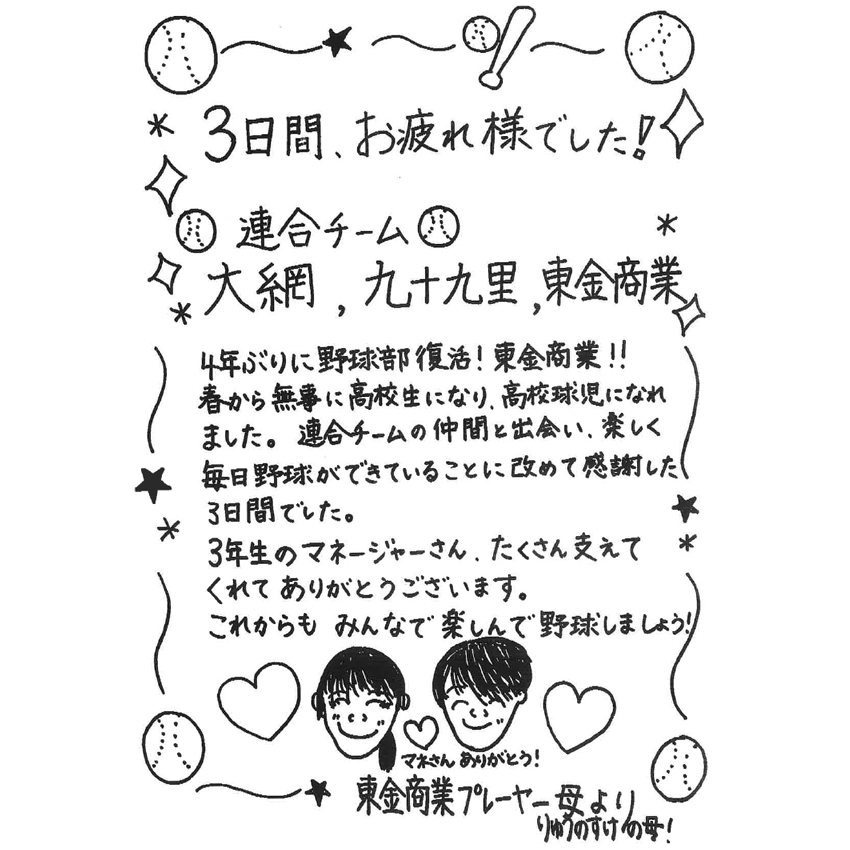 3日間、お疲れ様でした!
連合チーム
大網,九十九里,東金商業
4年ぶりに野球部復活!東金商業!!
春から無事に高校生になり、高校球児になれ
ました。連合チームの仲間と出会い、楽しく
毎日野球ができていることに改めて感謝した
3日間でした。
3年生のマネージャーさん、たくさん支えて
くれてありがとうございます。
これからも みんなで楽しんで野球しましょう!
マネさん ありがとう!
東金商業プレーヤー母より
りゅうのすけの母!